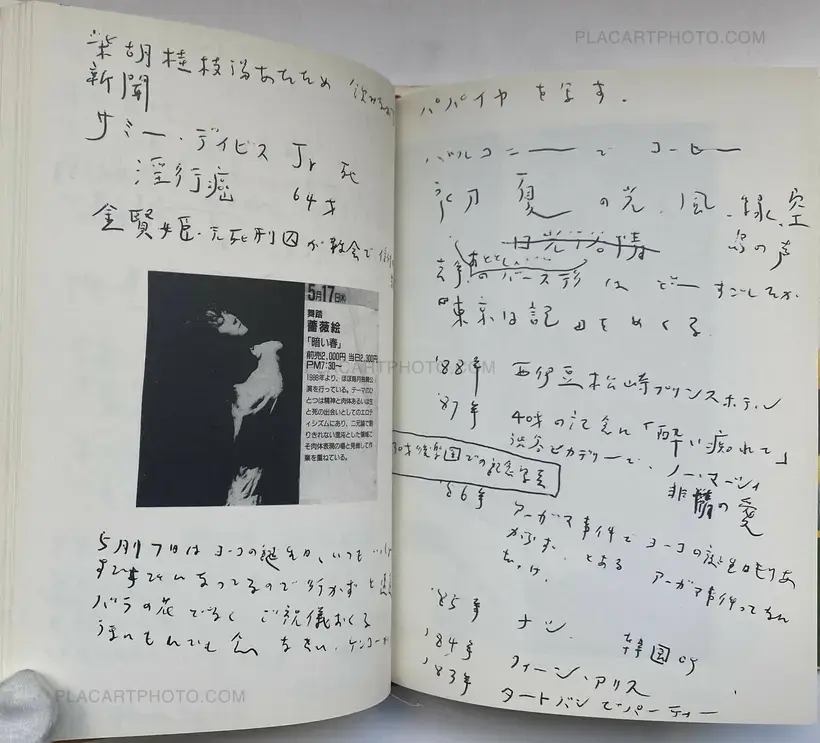 PLACARTPHOTO.COM
柴胡桂枝湯あたため
新聞
サミー・デイビス Jr 死
淫行癌 64才
金賢姫・元死刑囚が教会で
5月17日㈭
舞踏
薔薇絵
「暗い春」
前売2,000円 当日2,300円
PM7:30〜
1988年より、ほぼ毎月独舞公
演を行っている。テーマのひ
とつは精神と肉体あるいは生
と死の出会いとしてのエロテ
ィシズムにあり、二元論で割
りきれない混沌とした領域こ
そ肉体表現の場と見做して作
業を重ねている。
5月17日はヨーコの誕生日、いつも
なってるので行かずと
バラの花でなく ご祝儀おくる
パパイヤを写す.
バルコニーでコーヒー
初夏の光、風、緑、空
鳥の声
日光浴
のバースデイはどーすごしたか
東京日記をめくる.
'88年 西伊豆松崎プリンスホテル
'87年 40才の記念に「酔い痴れて」
渋谷ピカデリーで、ノー・マーシィ
非情の愛
30才後楽園での記念写真
'86年 アーガマ事件でヨーコの誕生日もりあ
がらず. とある アーガマ事件ってなん
だっけ.
'85年 ナシ. 韓国
'84年 クィーン・アリス
'83年 タートバンでパーティー
PLACARTPHOTO.COM
PLACARTPHOTO.COM